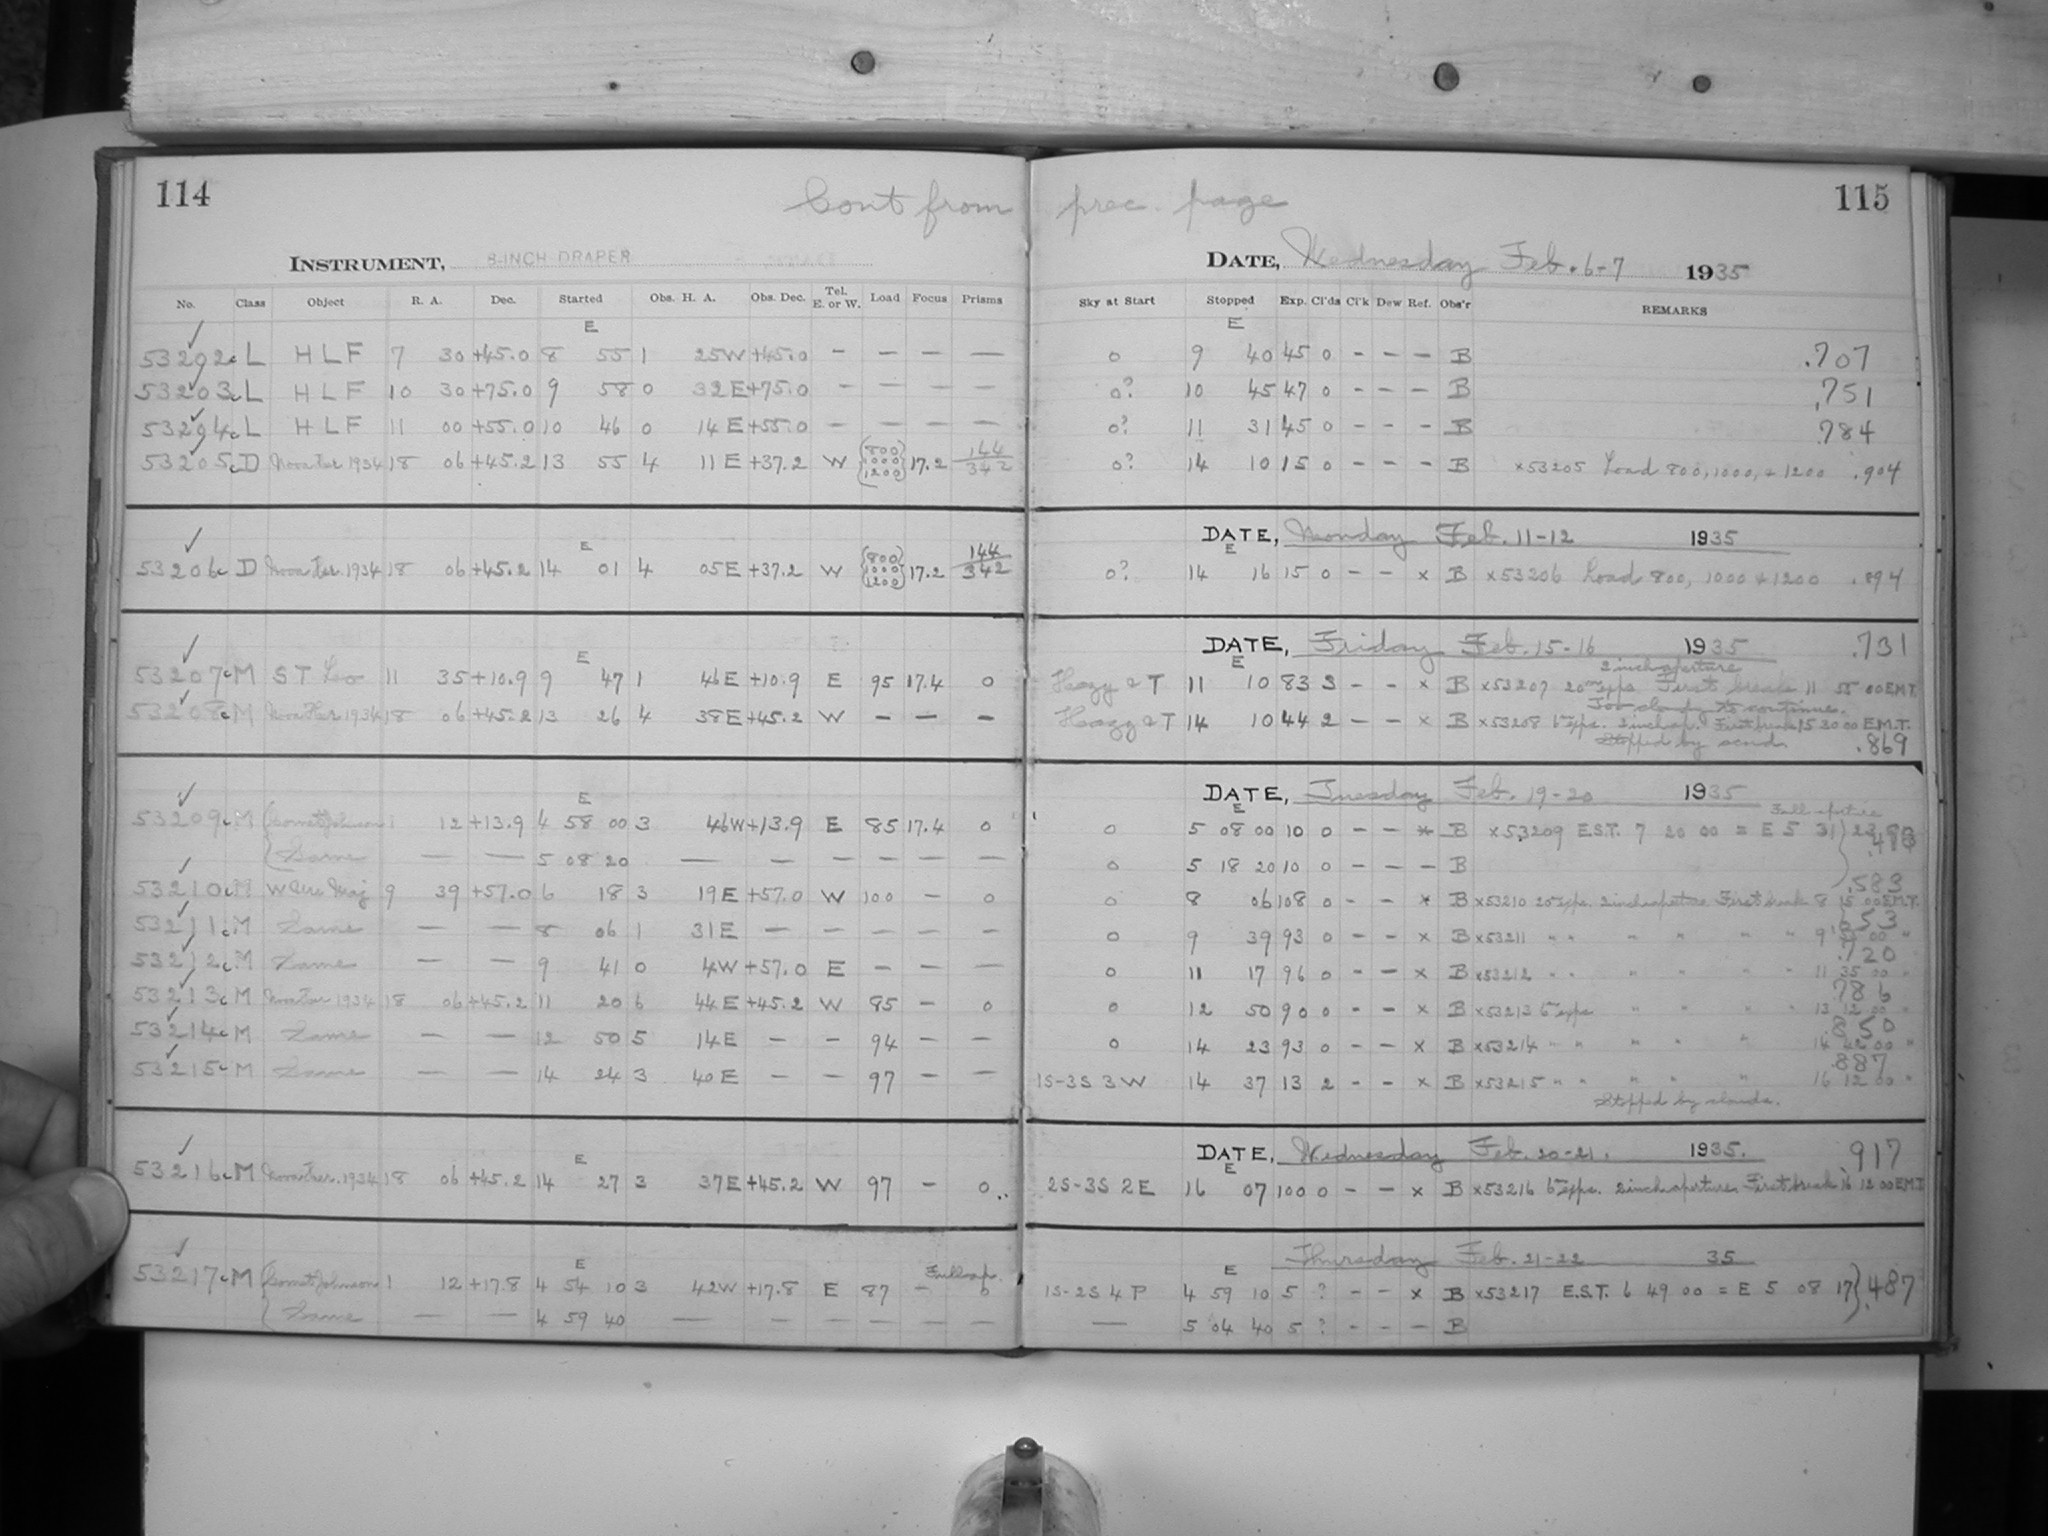 114
Cont from prec. page
115
INSTRUMENT, 8-INCH DRAPER
DATE, Wednesday Feb. 6-7 1935
No. Class Object R. A. Dec. Started Obs. H. A. Obs. Dec. Tel. E. or W. Load Focus Prisms Sky at Start Stopped Exp. Cl'ds Cl'k Dew Ref. Obs'r REMARKS
E E
53202c L H L F 7 30 +45.0 8 55 1 25W +45.0 – – – – 0 9 40 45 0 – – – B .707
53203c L H L F 10 30 +75.0 9 58 0 32E +75.0 – – – – 0? 10 45 47 0 – – – B .751
53204c L H L F 11 00 +55.0 10 46 0 14E +55.0 – – – – 0? 11 31 45 0 – – – B .784
53205c D Nova Her. 1934 18 06 +45.2 13 55 4 11E +37.2 W {800 1000 1200} 17.2 144 342 0? 14 10 15 0 – – – B ×53205 Load 800, 1000, + 1200 .904
DATE, Monday Feb. 11-12 1935
E E
53206c D Nova Her. 1934 18 06 +45.2 14 01 4 05E +37.2 W {800 1000 1200} 17.2 144 342 0? 14 16 15 0 – – × B ×53206 Load 800, 1000 + 1200 .894
DATE, Friday Feb. 15-16 1935 .731
E E
2 inch aperture
53207c M S T Leo 11 35 +10.9 9 47 1 46E +10.9 E 95 17.4 0 Hazy & T 11 10 83 3 – – × B ×53207 20m exps. First break 11 55 00 E.M.T.
Too cloudy to continue.
53208c M Nova Her 1934 18 06 +45.2 13 26 4 38E +45.2 W – – – Hazy & T 14 10 44 2 – – × B ×53208 6m exps. 2 inch ap. First break 15 30 00 E.M.T.
Stopped by clouds .869
DATE, Tuesday Feb. 19-20 1935
E E
Full aperture
53209c M {Comet Johnson 1 12 +13.9 4 58 00 3 46W +13.9 E 85 17.4 0 0 5 08 00 10 0 – – × B ×53209 E.S.T. 7 20 00 = E 5 31 23
{Same – – 5 08 20 – – – – – – 0 5 18 20 10 0 – – – B
.583
53210c M W Urs Maj 9 39 +57.0 6 18 3 19E +57.0 W 100 – 0 0 8 06 108 0 – – × B ×53210 20m exps. 2 inch aperture First break 8 15 00 E.M.T.
.653
53211c M Same – – 8 06 1 31E – – – – – 0 9 39 93 0 – – × B ×53211 " " " " " " 9 00 "
.720
53212c M Same – – 9 41 0 4W +57.0 E – – – 0 11 17 96 0 – – × B ×53212 " " " " " " 11 35 00 "
.786
53213c M Nova Her 1934 18 06 +45.2 11 20 6 44E +45.2 W 85 – 0 0 12 50 90 0 – – × B ×53213 6m exps " " " " 13 12 00 "
.850
53214c M Same – – 12 50 5 14E – – 94 – – 0 14 23 93 0 – – × B ×53214 " " " " " 14 42 00 "
.887
53215c M Same – – 14 24 3 40E – – 97 – – 1S-3S 3W 14 37 13 2 – – × B ×53215 " " " " " 16 12 00 "
Stopped by clouds.
DATE, Wednesday Feb. 20-21, 1935. .917
E E
53216c M Nova Her. 1934 18 06 +45.2 14 27 3 37E +45.2 W 97 – 0 2S-3S 2E 16 07 100 0 – – × B ×53216 6m exps. 2 inch aperture First break 16 12 00 E.M.T.
Thursday Feb. 21-22 35
E Full ap. E
53217c M {Comet Johnson 1 12 +17.8 4 54 10 3 42W +17.8 E 87 – 0 1S-2S 4 P 4 59 10 5 ? – – × B ×53217 E.S.T. 6 49 00 = E 5 08 17} .487
{Same – – 4 59 40 – – – – – – – 5 04 40 5 ? – – – B